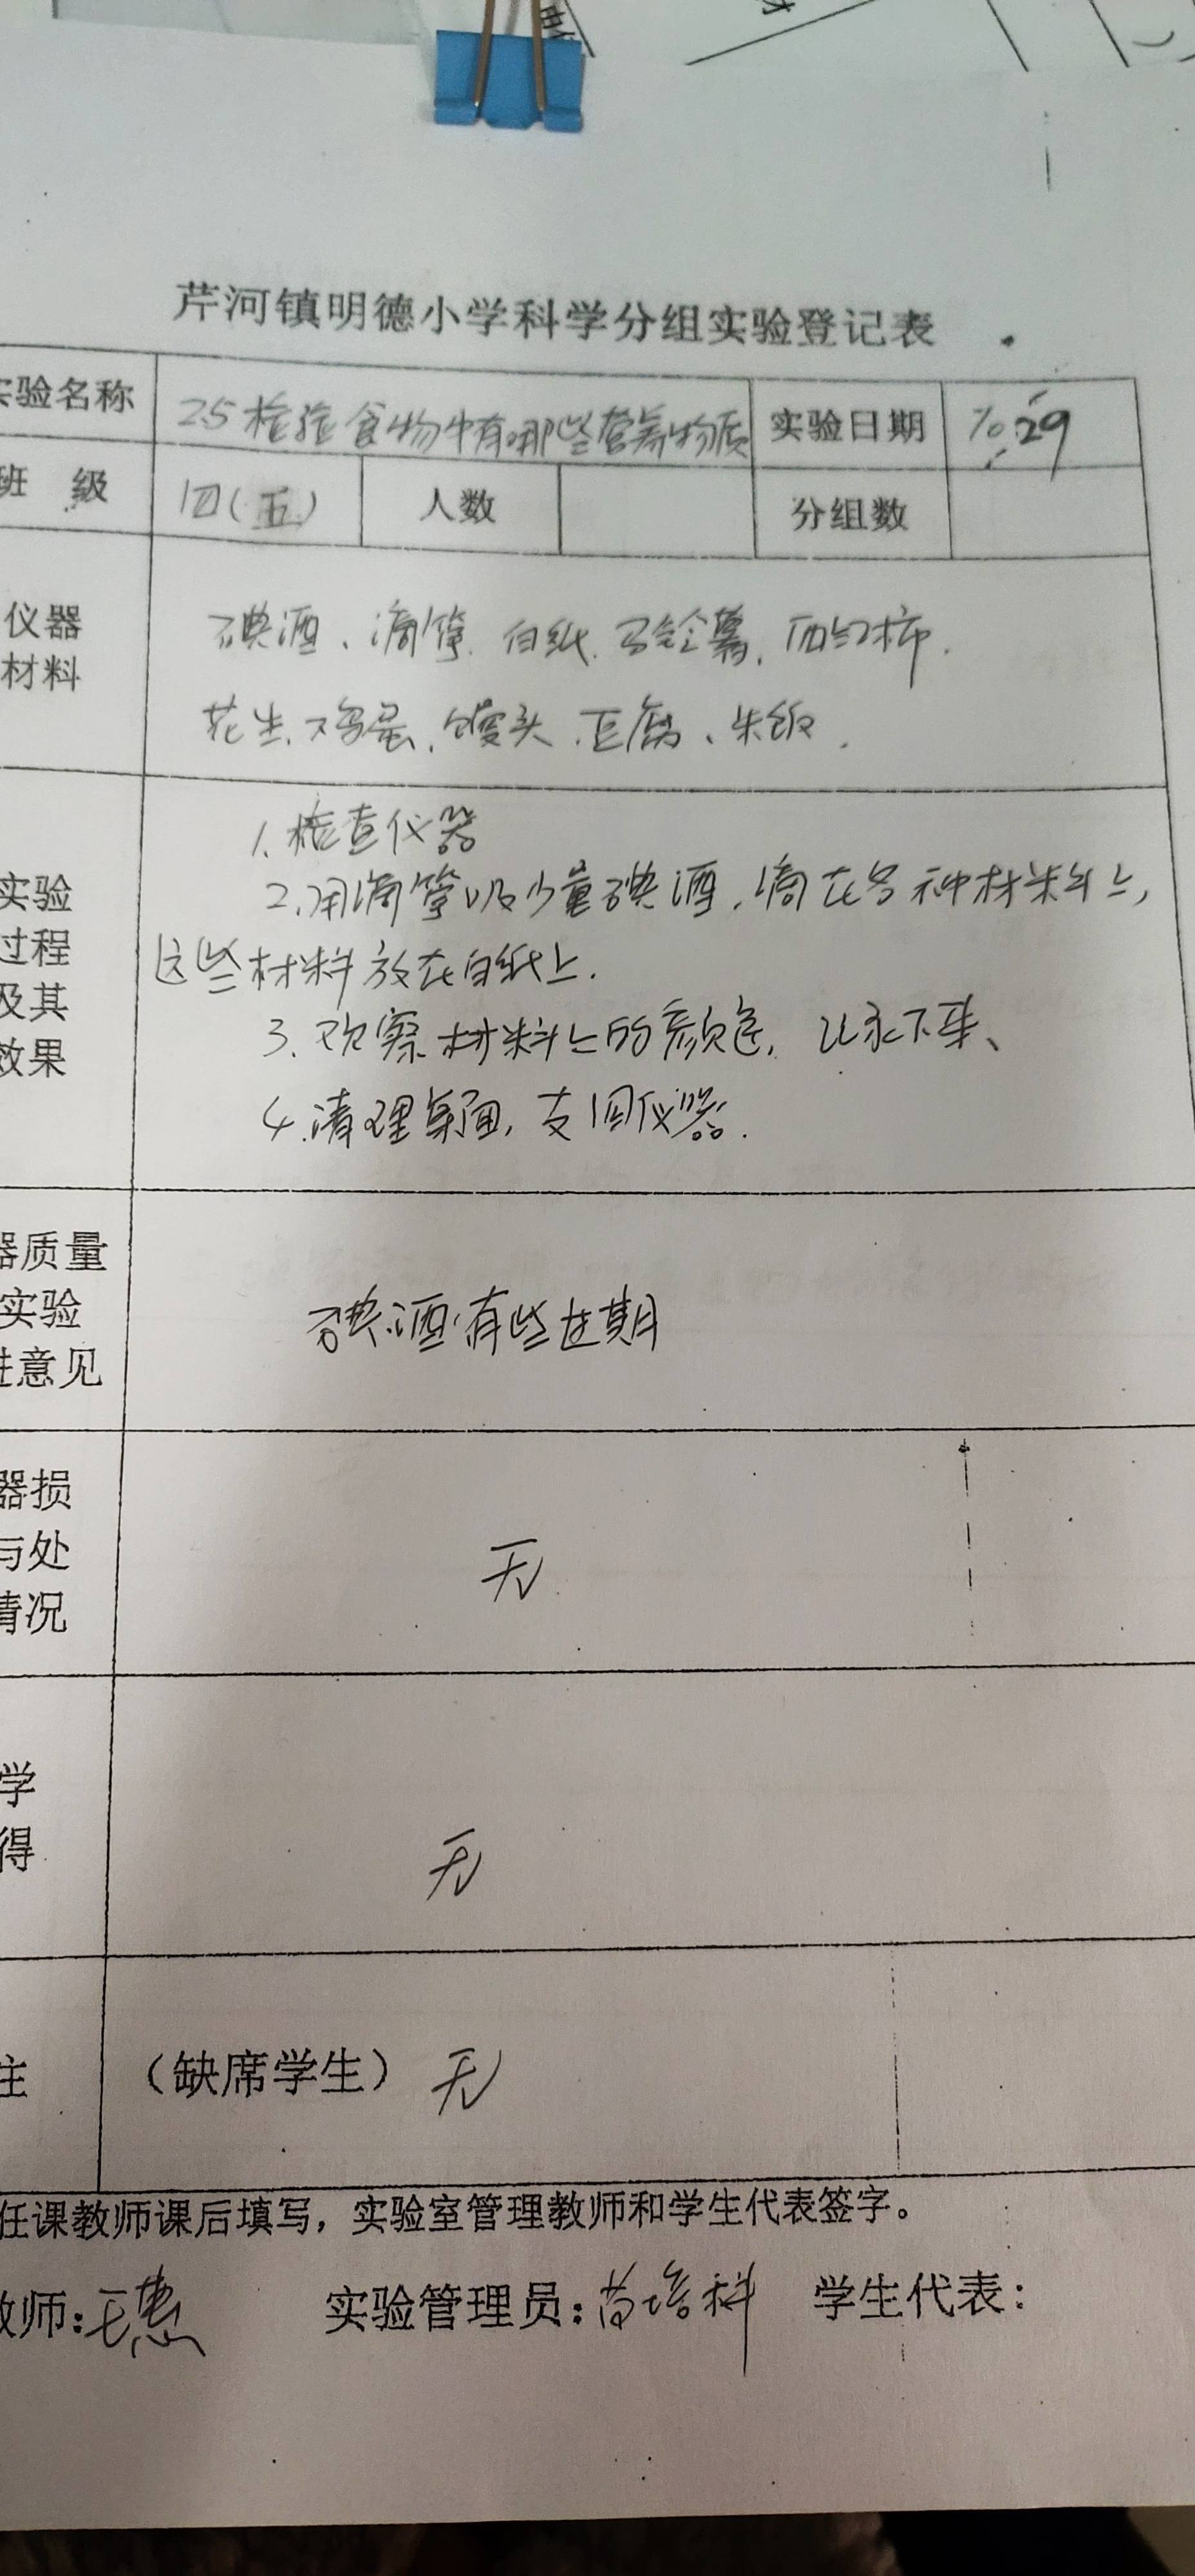 芹河镇明德小学科学分组实验登记表
实验名称 25检验食物中有哪些营养物质 实验日期 10.29
班 级 四(五) 人数 分组数
仪器
材料
碘酒、滴管.白纸.马铃薯.西红柿.
花生.鸡蛋.馒头.豆腐、米饭.
实验
过程
及其
效果
1.检查仪器
2.用滴管吸少量碘酒,滴在各种材料上,
这些材料放在白纸上.
3.观察材料上的颜色,记录下来、
4.清理桌面,支回仪器.
器质量
实验
进意见
碘酒有些过期
器损
与处
情况
无
学
得
无
注 (缺席学生) 无
任课教师课后填写,实验室管理教师和学生代表签字。
教师:王惠 实验管理员: 学生代表: